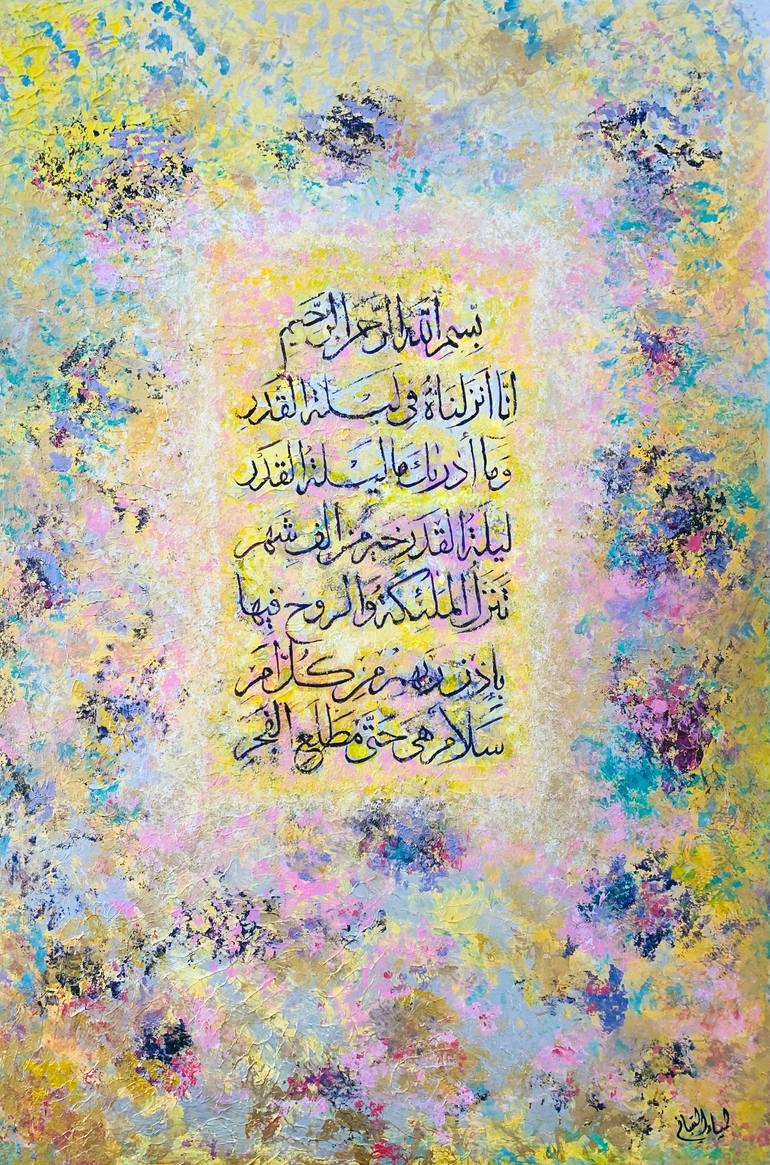 بِسْمِ اللهِ الرَّحْمَنِ الرَّحِيمِ
اِنَّا أَنزَلنَاهُ فِي لَيْلَةِ القَدْرِ
وَمَا أَدْرَىكَ مَا لَيْلَةُ القَدْرِ
لَيلَةُ القَدْرِ خَيرٌ مِن أَلفِ شَهْر
تَنَزَّلُ المَلَئِكَةُ وَالروح فِيهَا
بِإِذنِ رَبِّهِم مِن كُلِّ أَمْر
سَلَامٌ هِيَ حَتَّى مَطْلَعِ الفَجْر
لمياء